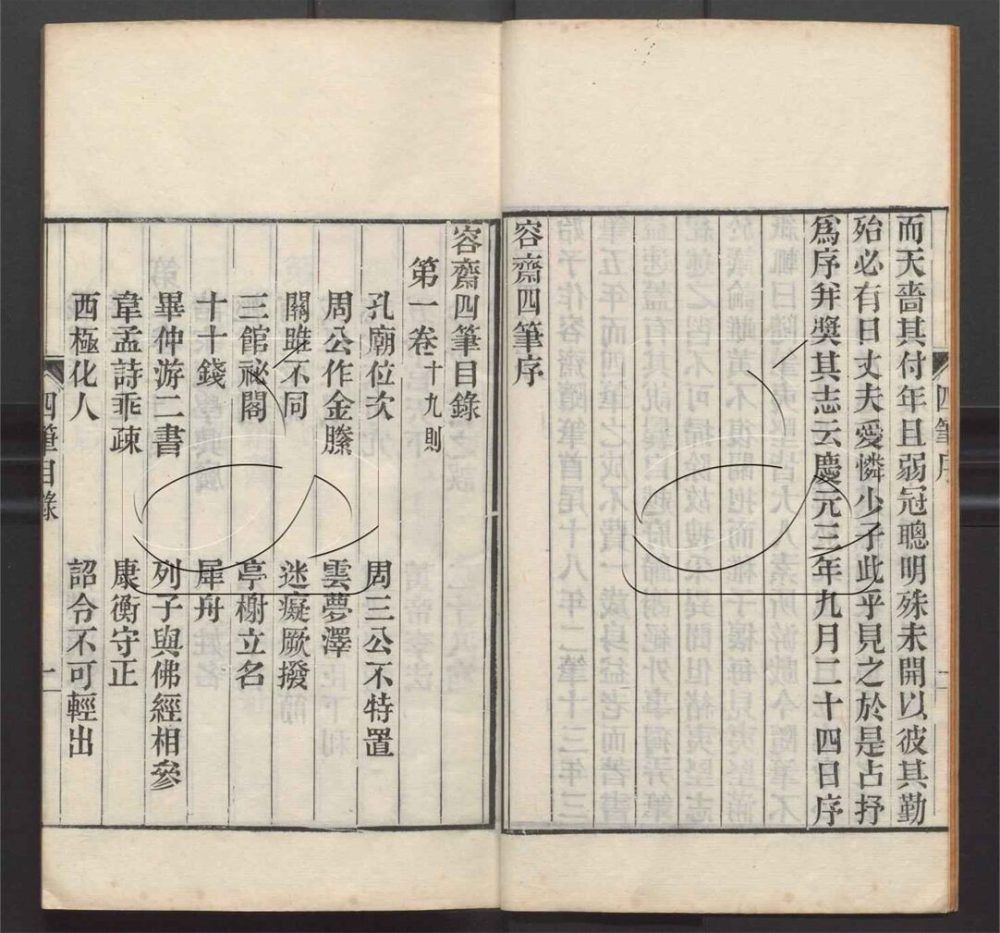 而天嗇其付年且弱冠聰明殊未開以彼其勤
殆必有日丈夫愛憐少子此乎見之於是占抒
爲序幷奬其志云慶元三年九月二十四日序
容齋四筆序
四筆序
容齋四筆目錄
第一卷 十九則
孔廟位次 周三公不特置
周公作金縢 雲夢澤
關雎不同 迷癡厥撥
三館祕閣 亭榭立名
十十錢 犀舟
畢仲游二書 列子與佛經相參
韋孟詩乖疎 康衡守正
西極化人 詔令不可輕出
四筆目錄 一